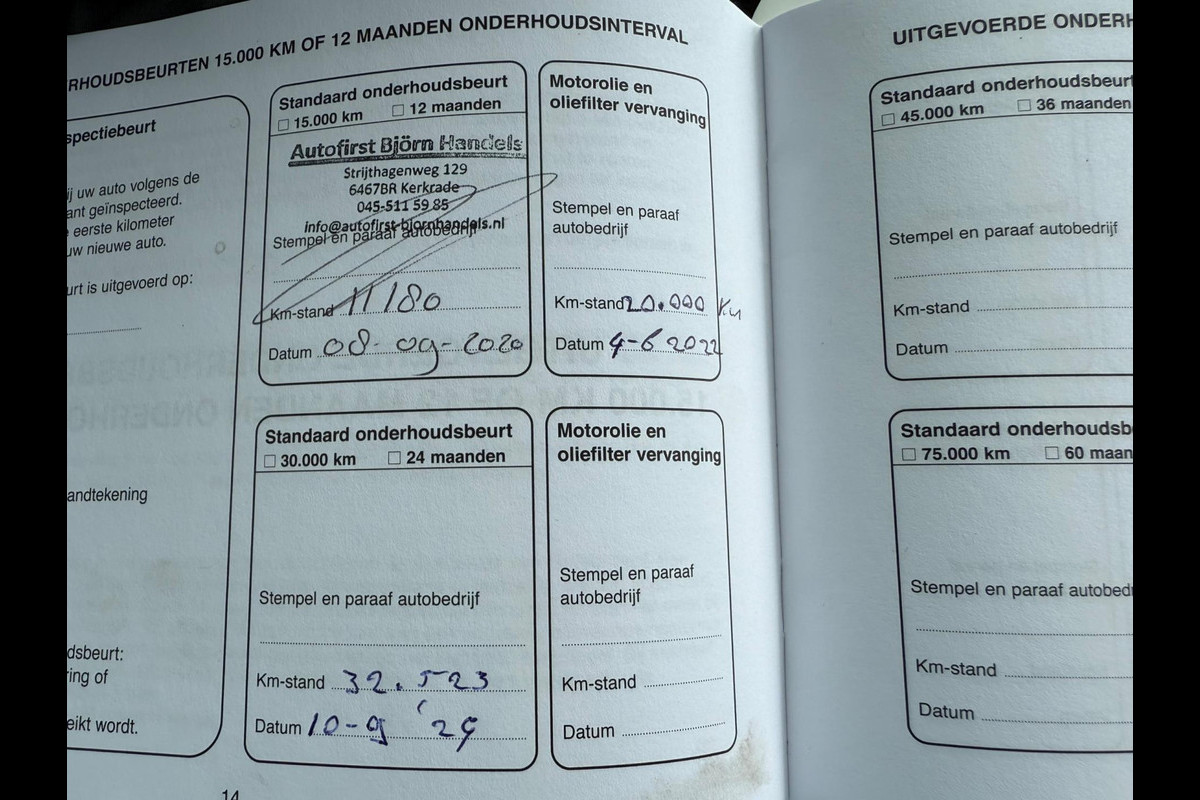 RHOUDSBEURTEN 15.000 KM OF 12 MAANDEN ONDERHOUDSINTERVAL
spectiebeurt
ij uw auto volgens de
ant geïnspecteerd.
eerste kilometer
uw nieuwe auto.
urt is uitgevoerd op:
andtekening
dsbeurt:
ring of
eikt wordt.
14
Standaard onderhoudsbeurt
☐ 15.000 km ☐ 12 maanden
Autofirst Björn Handels
Strijthagenweg 129
6467BR Kerkrade
045-511 59 85
info@autofirst-bjornhandels.nl
Stempel en paraaf autobedrijf
Km-stand 11180
Datum 08-09-2020
Motorolie en
oliefilter vervanging
Stempel en paraaf
autobedrijf
Km-stand 20.000 Km
Datum 4-6 2022
Standaard onderhoudsbeurt
☐ 30.000 km ☐ 24 maanden
Stempel en paraaf autobedrijf
Km-stand 32.523
Datum 10-9 '24
Motorolie en
oliefilter vervanging
Stempel en paraaf
autobedrijf
Km-stand
Datum
UITGEVOERDE ONDERH
Standaard onderhoudsbeurt
☐ 45.000 km ☐ 36 maanden
Stempel en paraaf autobedrijf
Km-stand
Datum
Standaard onderhoudsb
☐ 75.000 km ☐ 60 maan
Stempel en paraaf autobedri
Km-stand
Datum